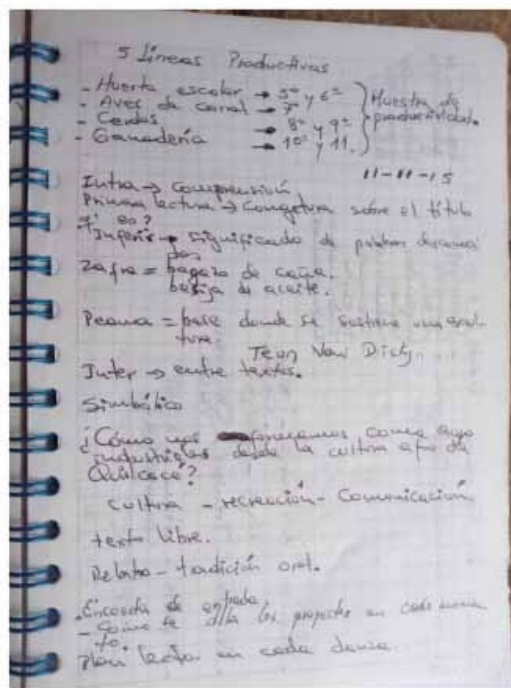 5 Líneas Productivas
- Huerta escolar → 5° y 6°
- Aves de corral → 7°
- Cerdos → 8° y 9°
- Ganadería → 10° y 11.
Muestra de productividad.
11-11-15
Intra → Comprensión
Primera lectura → Congetura sobre el título
qi es?
Inferir → significado de palabras
Zafra = bagazo de caña.
basija de aceite.
Peana = base donde se sostiene una
tura.
Teun Van
Inter → entre textos.
Simbólico
¿Cómo nos como agro
industriales desde la cultura afro de
Quilcacé?
Cultura - recreación - Comunicación
texto libre.
Relato - tradición oral.
. Encuesta de entrada
- Cómo se los proyectos en cada
to.
Plan lector en cada danza.